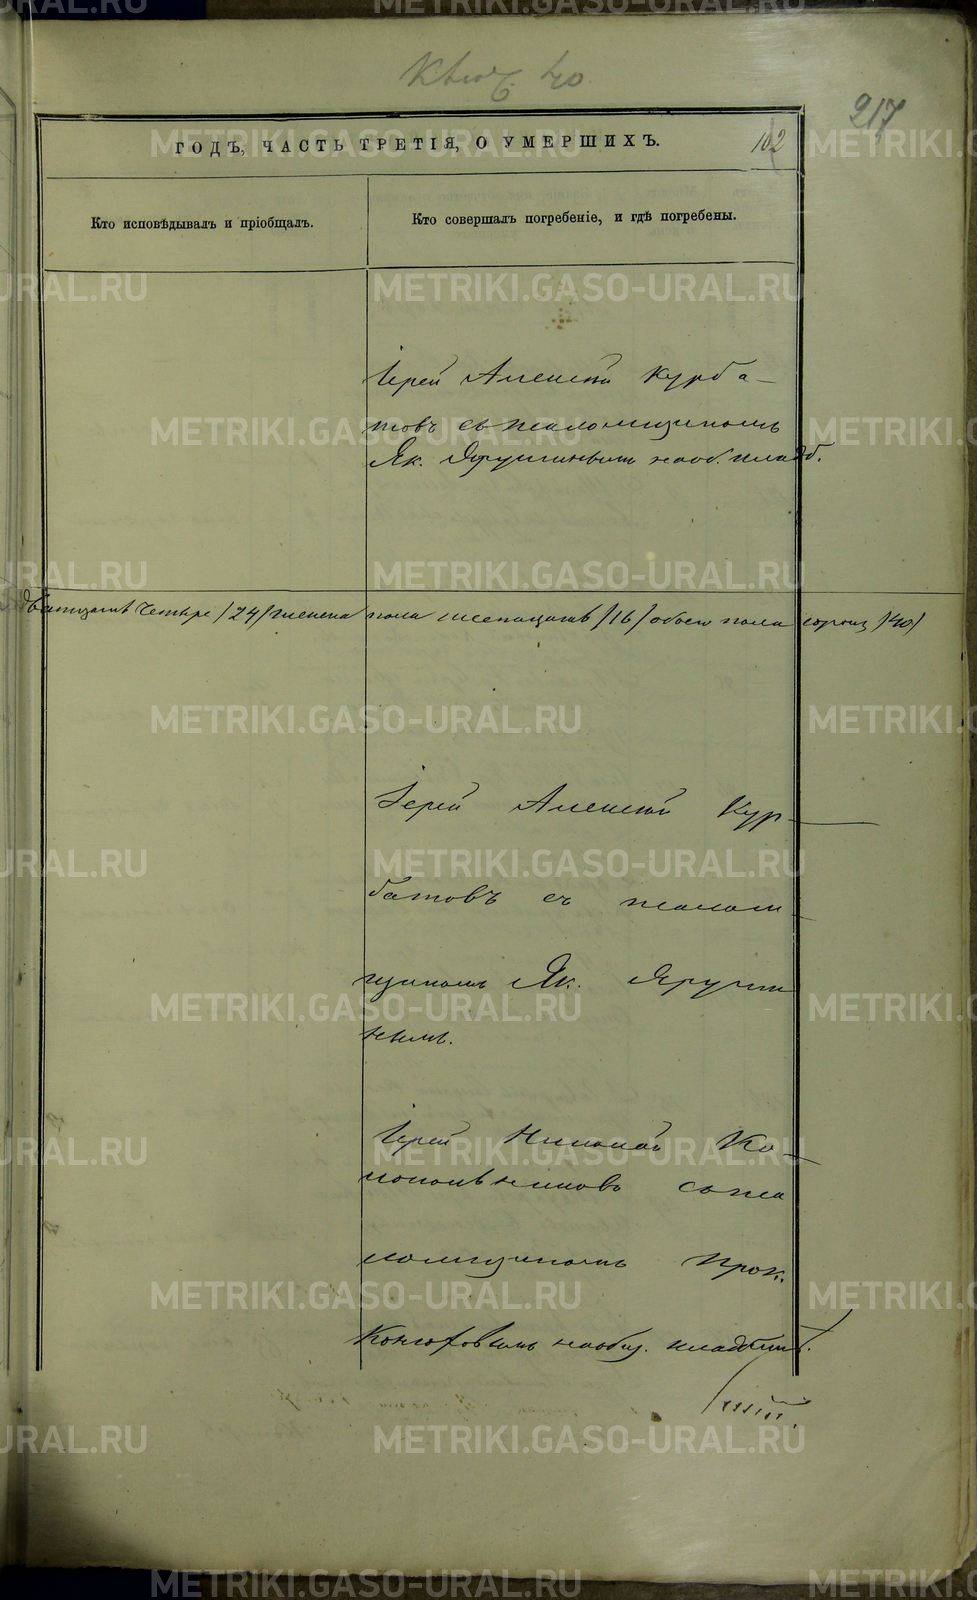 217
ГОДЪ, ЧАСТЬ ТРЕТІЯ, О УМЕРШИХЪ.
102
Кто исповѣдывалъ и пріобщалъ.
Кто совершалъ погребеніе, и гдѣ погребены.
Іерей Алексѣй Курба-
товъ съ псаломщикомъ
Як. Яруши­нымъ на об. кладб.
двадцать четыре /24/ женска пола шестнадцать /16/ обоего пола сорокъ /40/
Іерей Алексѣй Кур-
батовъ съ псалом-
щикомъ Як. Яруши
нымъ.
Іерей Николай Ко-
съ пса
ломщикомъ Прок.
на общ. кладбищѣ.
METRIKI.GASO-URAL.RU